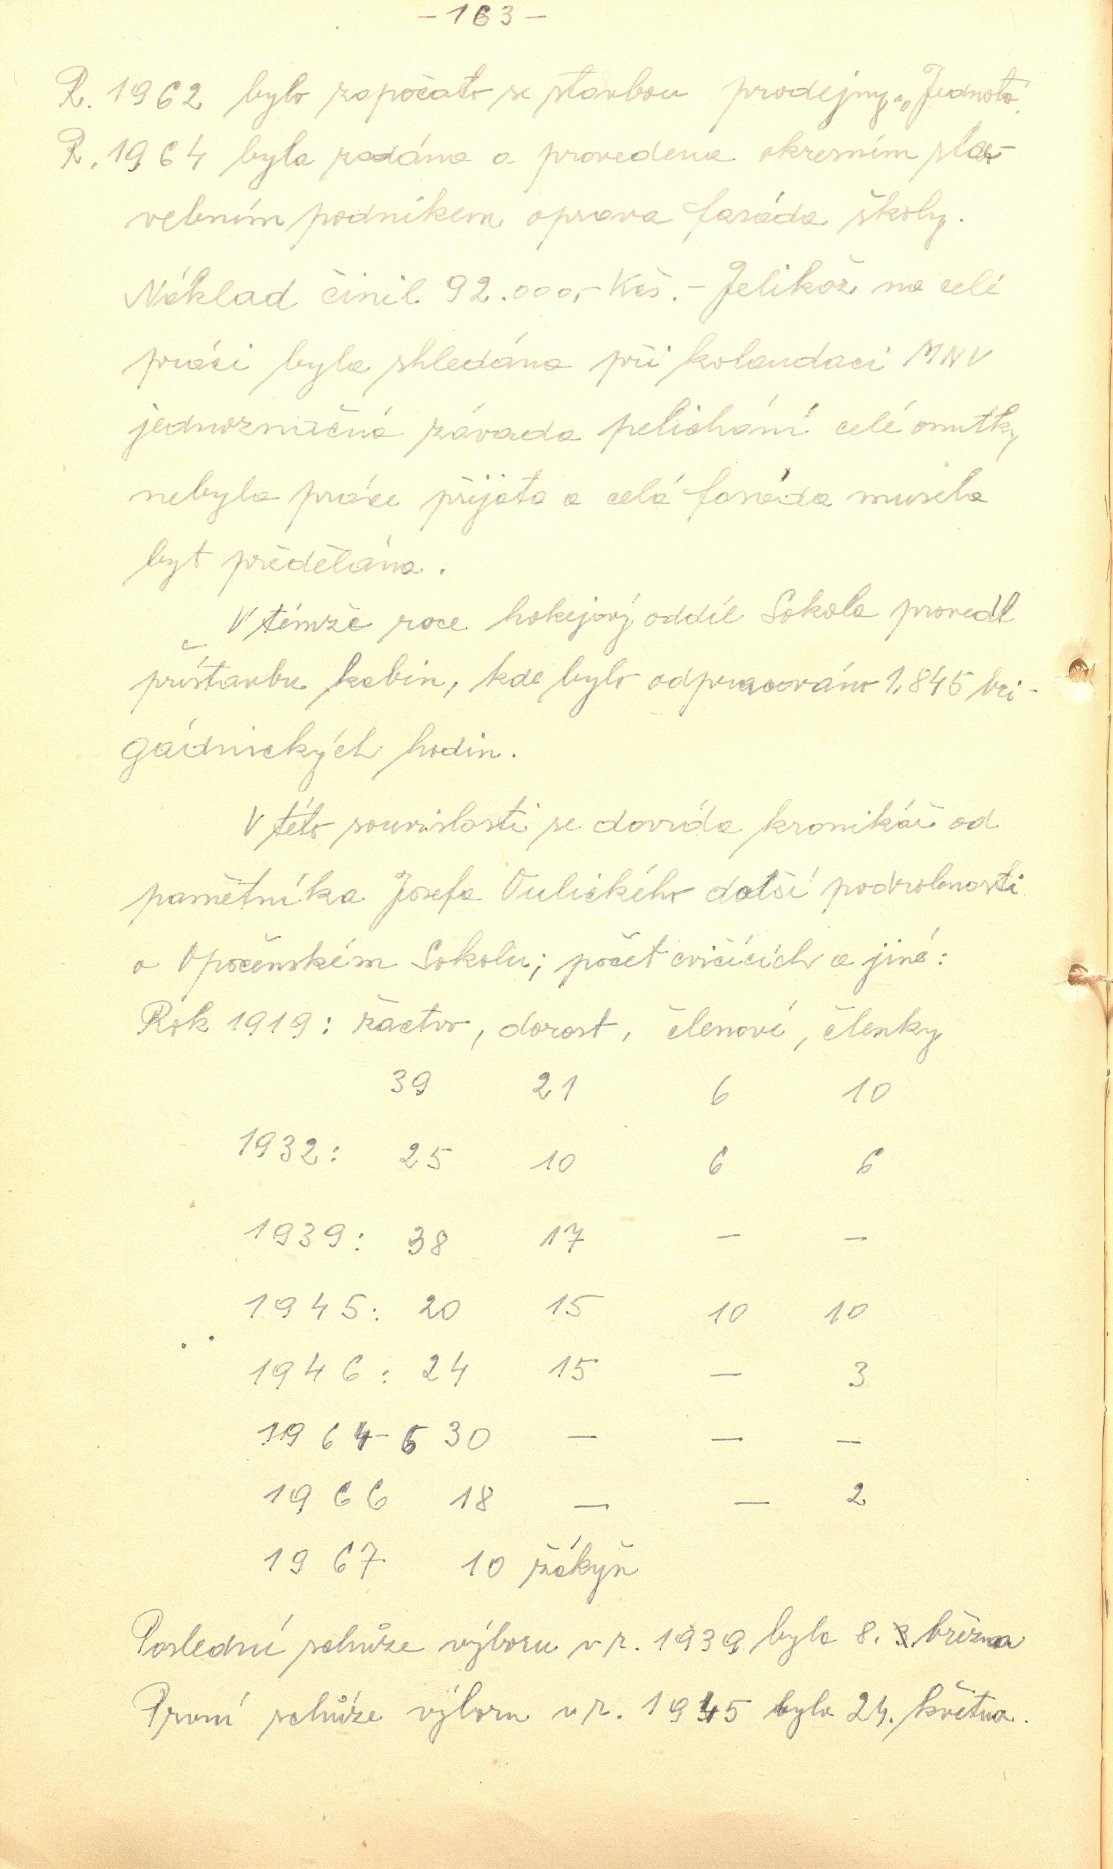 - 163 -
R. 1962 bylo započato se stavbou prodejny „Jednota“.
R. 1964 byla zadána a provedena okresním sta-
vebním podnikem oprava fasáda školy.
Náklad činil 92.000,- Kčs. - Jelikož na celé
práci byla shledána při kolaudaci MNV
jednoznačná závada pelichání celé omítky
nebyla práce přijata a celá fasáda musela
byt předělána.
V témže roce hokejový oddíl Sokola provedl
přístavbu kabin, kde bylo odpracováno 1.845 bri-
gádnických hodin.
V této souvislosti se dovídá kronikář od
pamětníka Josefa Vulického další podrobnosti
o Opočenském Sokolu; počet cvičících a jiné:
Rok 1919: žactvo, dorost, členové, členky
39 21 6 10
1932: 25 10 6 6
1939: 38 17 — —
1945: 20 15 10 10
1946: 24 15 — 3
1964-5 30 — — —
1966 18 — — 2
1967 10 žákyň
Poslední schůze výboru v r. 1939 byla 8. března
První schůze výboru v r. 1945 byla 24. května.